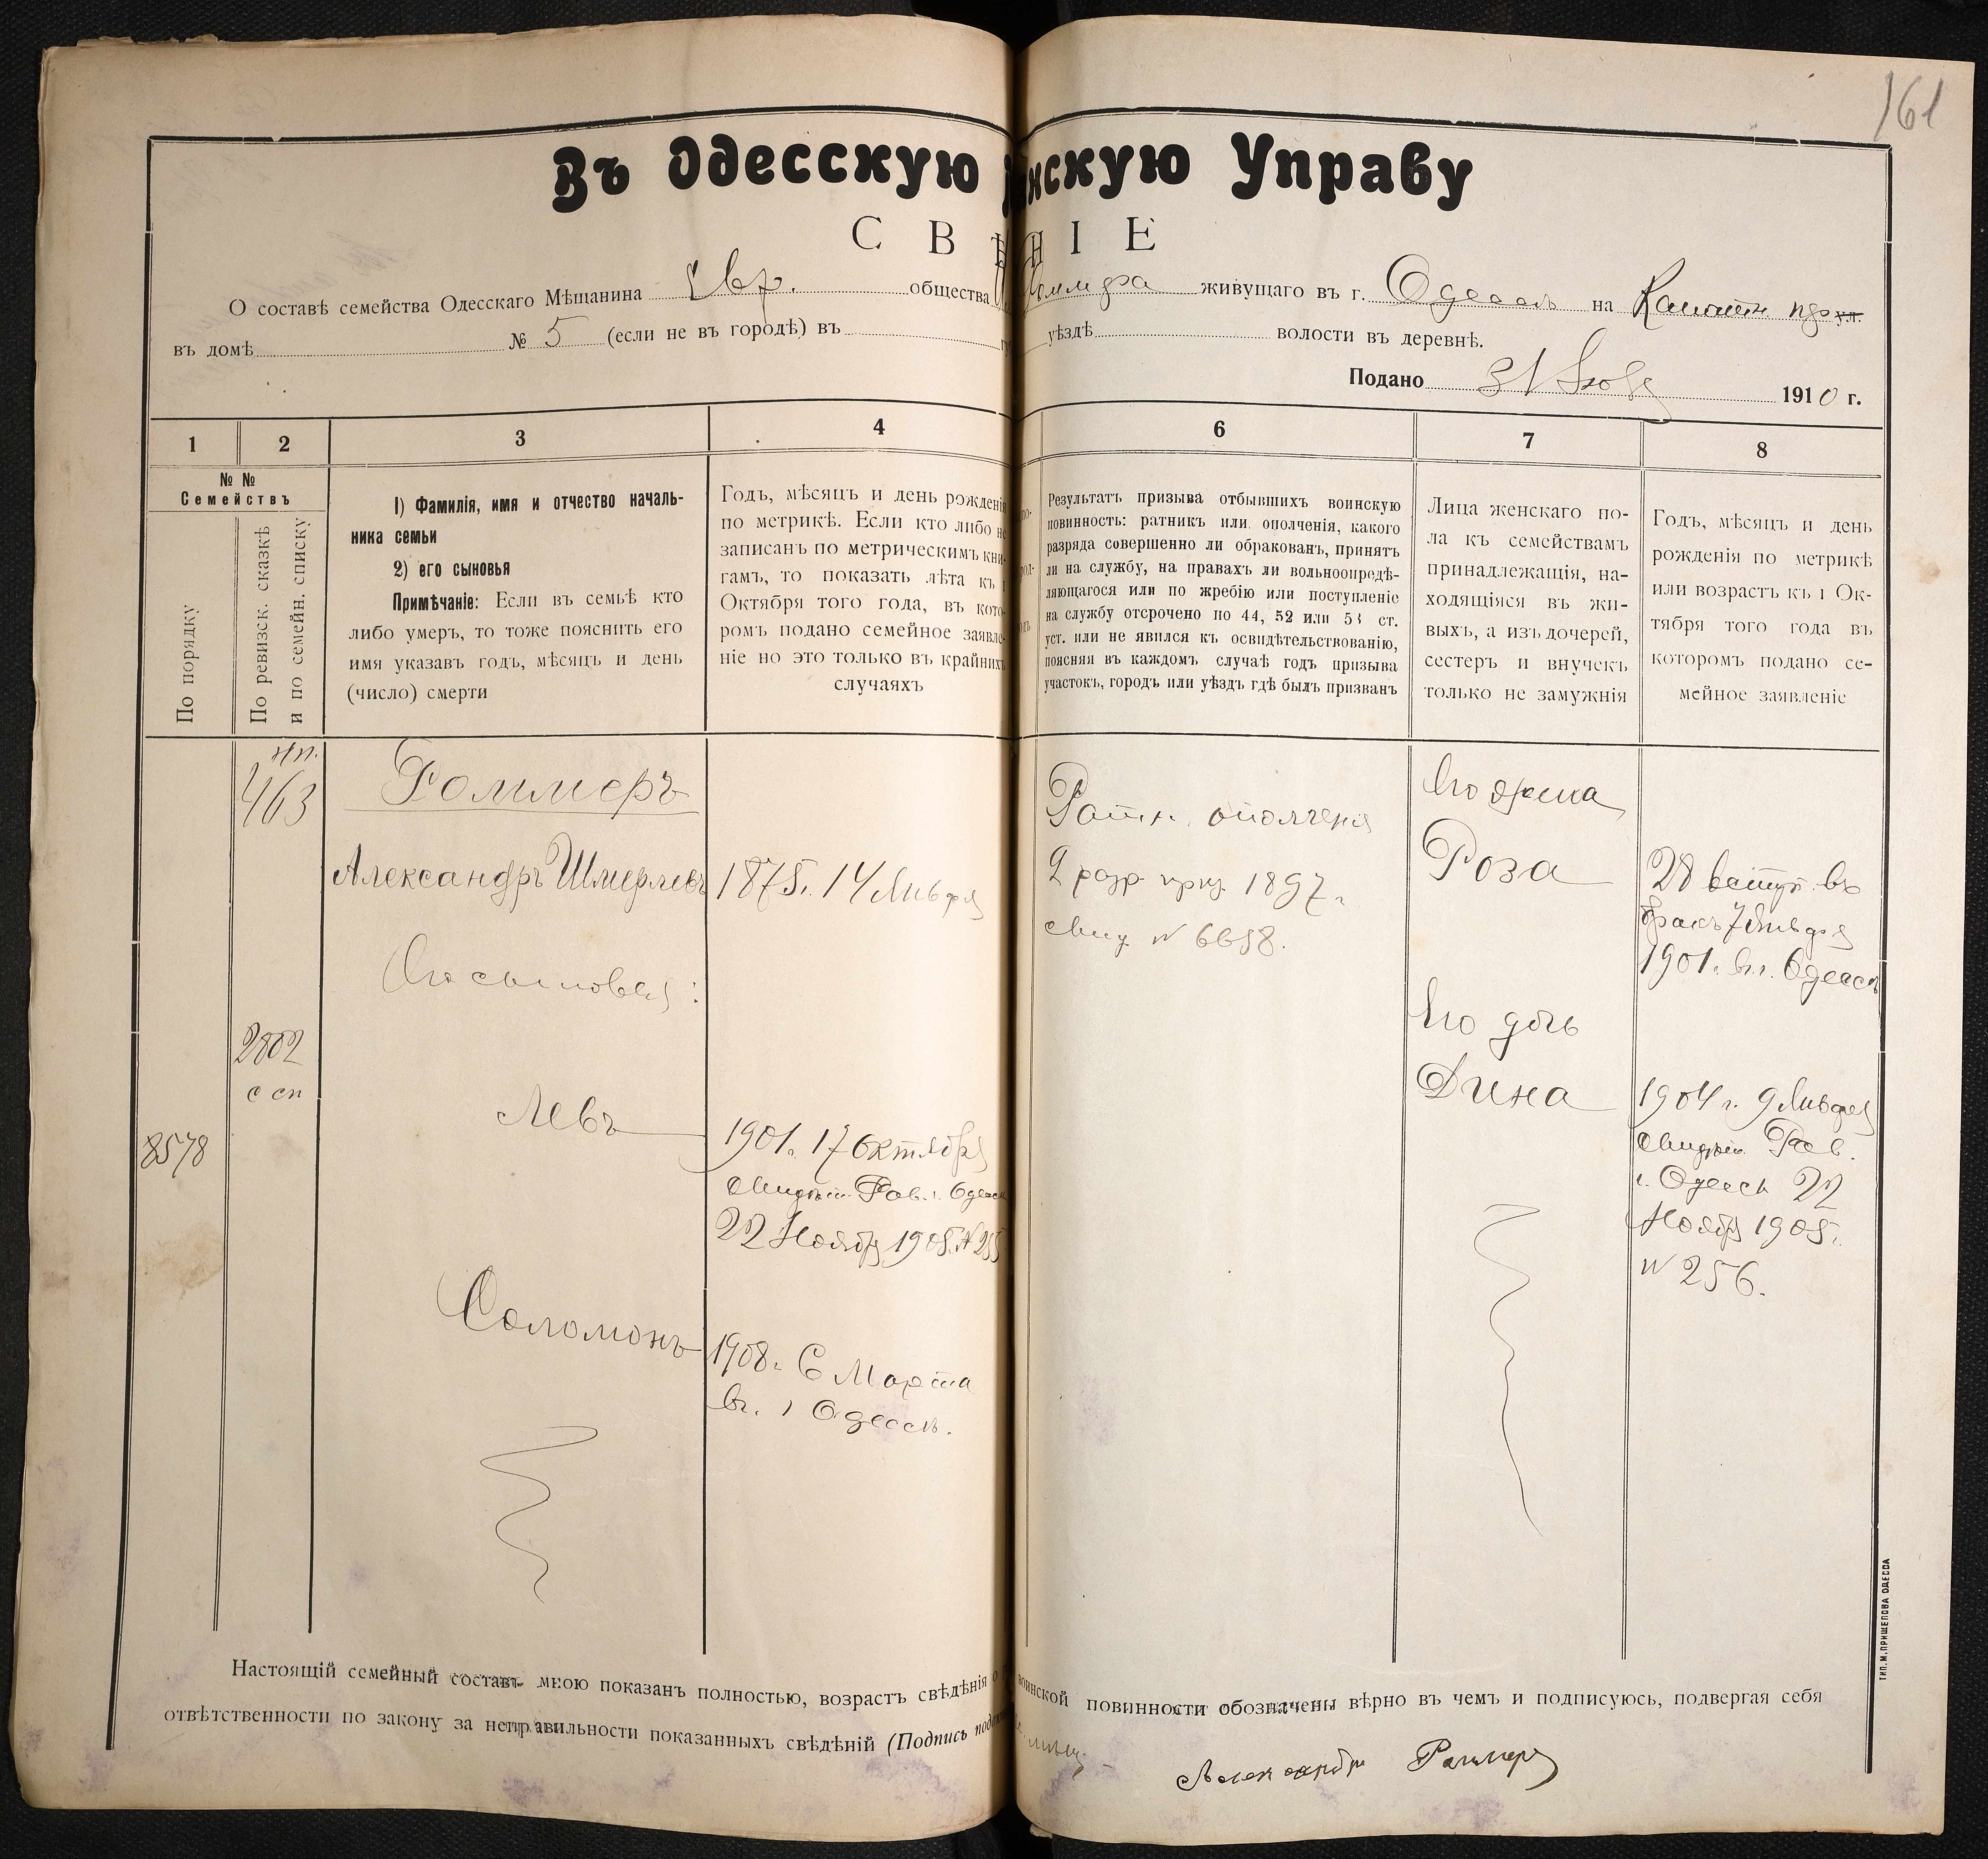 161
Въ Одесскую нскую Управу
СВѢ НІЕ
О составѣ семейства Одесскаго Мѣщанина Евр. общества живущаго въ г. Одессѣ на Канатн. ул.
въ домѣ № 5 (если не въ городѣ) въ уѣздѣ волости въ деревнѣ.
Подано 31 1910 г.
1 2 3 4 6 7 8
№ №
Семействъ
По порядку
По ревизск. сказкѣ
и по семейн. списку
1) Фамилія, имя и отчество началь-
ника семьи
2) его сыновья
Примѣчаніе: Если въ семьѣ кто
либо умеръ, то тоже пояснить его
имя указавъ годъ, мѣсяцъ и день
(число) смерти
Годъ, мѣсяцъ и день рожденія
по метрикѣ. Если кто либо не
записанъ по метрическимъ кни-
гамъ, то показать лѣта къ 1
Октября того года, въ кото-
ромъ подано семейное заявле-
ніе но это только въ крайнихъ
случаяхъ
Результатъ призыва отбывшихъ воинскую
повинность: ратникъ или ополченія, какого
разряда совершенно ли обракованъ, принятъ
ли на службу, на правахъ ли вольноопредѣ-
ляющагося или по жребію или поступленіе
на службу отсрочено по 44, 52 или 53 ст.
уст. или не явился къ освидѣтельствованію,
поясняя въ каждомъ случаѣ годъ призыва
участокъ, городъ или уѣздъ гдѣ былъ призванъ
Лица женскаго по-
ла къ семействамъ
принадлежащія, на-
ходящіяся въ жи-
выхъ, а изъ дочерей,
сестеръ и внучекъ
только не замужнія
Годъ, мѣсяцъ и день
рожденія по метрикѣ
или возрастъ къ 1 Ок-
тября того года въ
которомъ подано се-
мейное заявленіе
463
Роммеръ
Александръ Шмерлевъ
1875 г. 14 Января
Его сыновья:
2802
с сп
8578
Левъ
1901 г. 17 Октября
Свидѣт. Рав. г. Одесс
22 Ноября 1905 г. № 255
Соломонъ
1908 г. 6 Марта
въ г. Одессѣ.
Ратн. ополченія
2 разр. приз. 1897 г.
свид. № 6658.
Его жена
Роза
28 вступ. въ
бракъ 7 Января
1901 г. въ г. Одессѣ
Его дочь
Дина
1904 г. 9 Января
Свидѣт. Рав.
г. Одессы 22
Ноября 1905 г.
№ 256.
Настоящій семейный составъ мною показанъ полностью, возрастъ свѣдѣнія о воинской повинности обозначены вѣрно въ чемъ и подписуюсь, подвергая себя
отвѣтственности по закону за неправильности показанныхъ свѣдѣній (Подпись
Александръ Роммеръ
ТИП. М. ПРИЩЕПОВА ОДЕССА